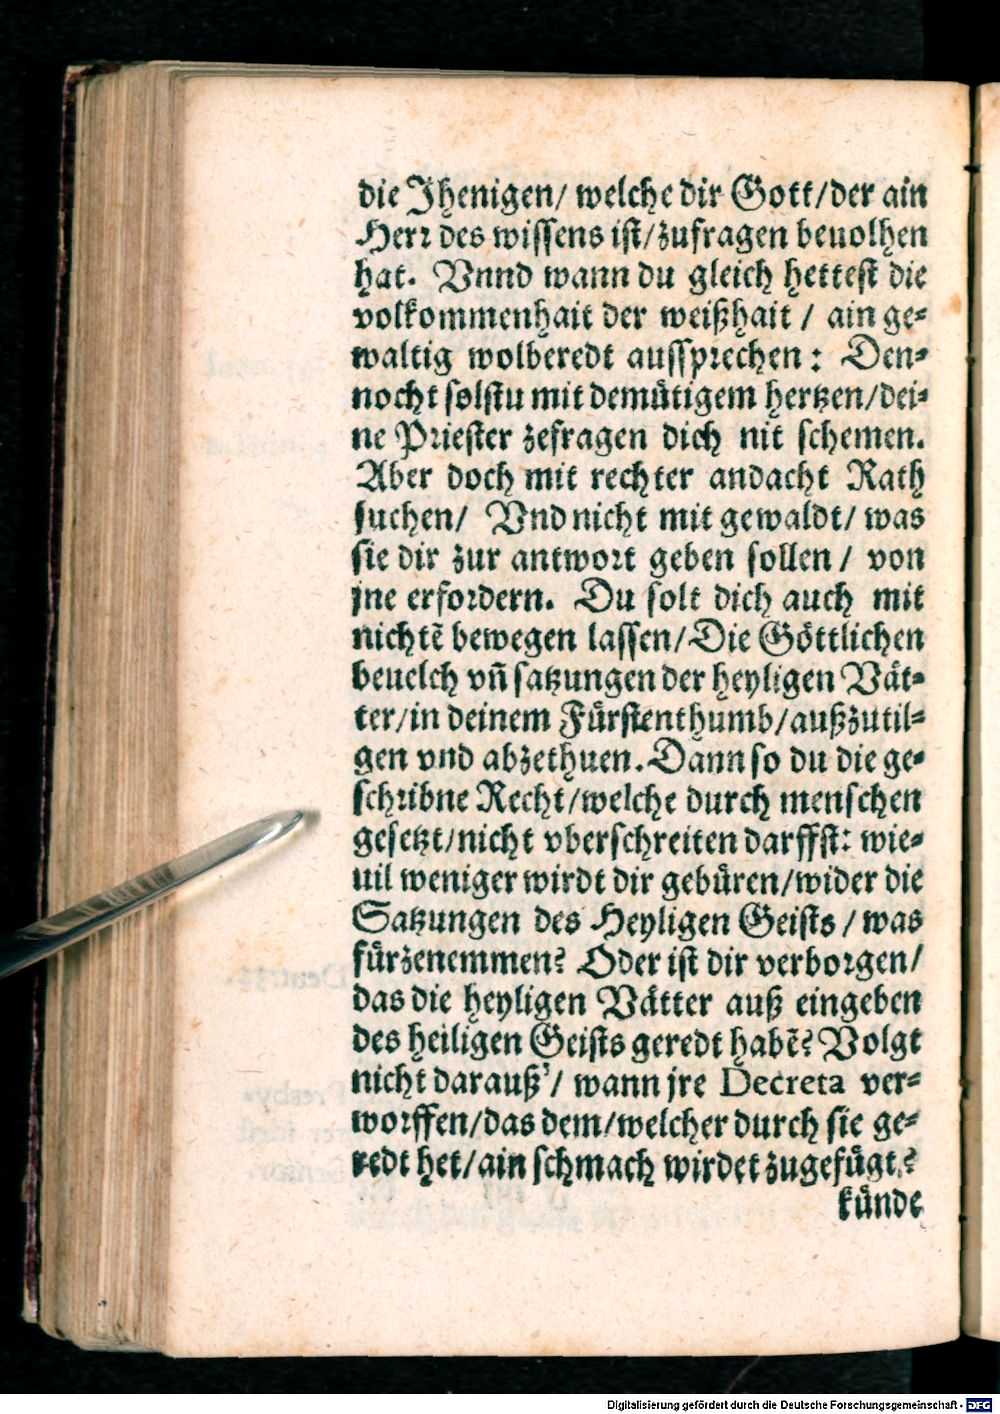 die Jhenigen/ welche dir Gott/der ain
Herr des wissens ist/zufragen beuolhen
hat. Vnnd wann du gleich hettest die
volkommenhait der weißhait / ain ge⸗
waltig wolberedt aussprechen: Den⸗
nocht solstu mit demütigem hertzen/dei⸗
ne Priester zefragen dich nit schemen.
Aber doch mit rechter andacht Rath
suchen/ Vnd nicht mit gewaldt/ was
sie dir zur antwort geben sollen / von
jne erfordern. Du solt dich auch mit
nichtē bewegen lassen/Die Göttlichen
beuelch vñ satzungen der heyligen Vät⸗
ter/in deinem Fürstenthumb/außzutil⸗
gen vnd abzethuen. Dann so du die ge⸗
schribne Recht/welche durch menschen
gesetzt/nicht vberschreiten darffst: wie⸗
uil weniger wirdt dir gebüren/wider die
Satzungen des Heyligen Geists / was
fürzenemmen? Oder ist dir verborgen/
das die heyligen Vätter auß eingeben
des heiligen Geists geredt habē? Volgt
nicht darauß/ wann jre Decreta ver⸗
worffen/das dem/welcher durch sie ge⸗
redt het/ain schmach wirdet zugefügt?
künde
Digitalisierung gefördert durch die Deutsche Forschungsgemeinschaft - DFG